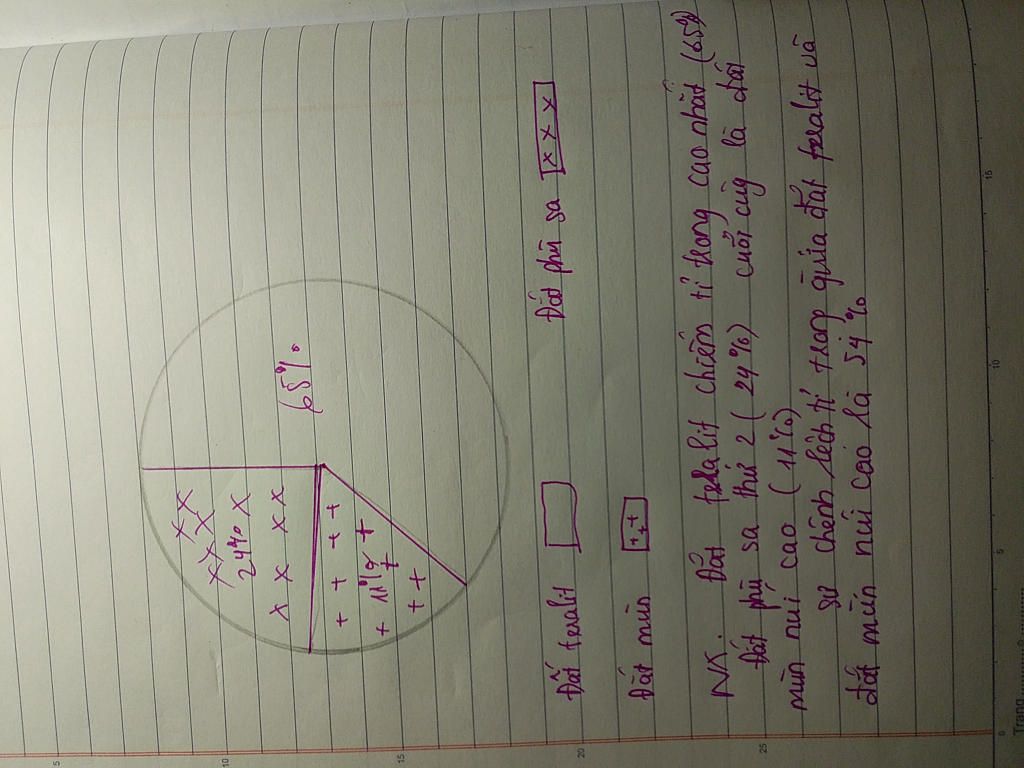 65%
24%
11%
Đất feralit
Đất phù sa
Đất mùn
NX. Đất feralit chiếm tỉ trọng cao nhất (65%)
Đất phù sa thứ 2 (24%) cuối cùg là đất
mùn núi cao (11%)
sự chênh lệch tỉ trọng giữa đất feralit và
đất mùn núi cao là 54%
5
10
15
20
25
0
5
10
15
Trang